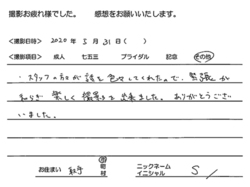 撮影お疲れ様でした。　感想をお願いいたします。
<撮影日時> 2020 年 5 月 31 日 ( )
<撮影項目> 成人 七五三 ブライダル 記念 その他
・スタッフの方が話を色々してくれたので、緊張が
和らぎ楽しく撮影が出来ました。ありがとうござい
いました。
お住まい
ニックネーム
イニシャル S